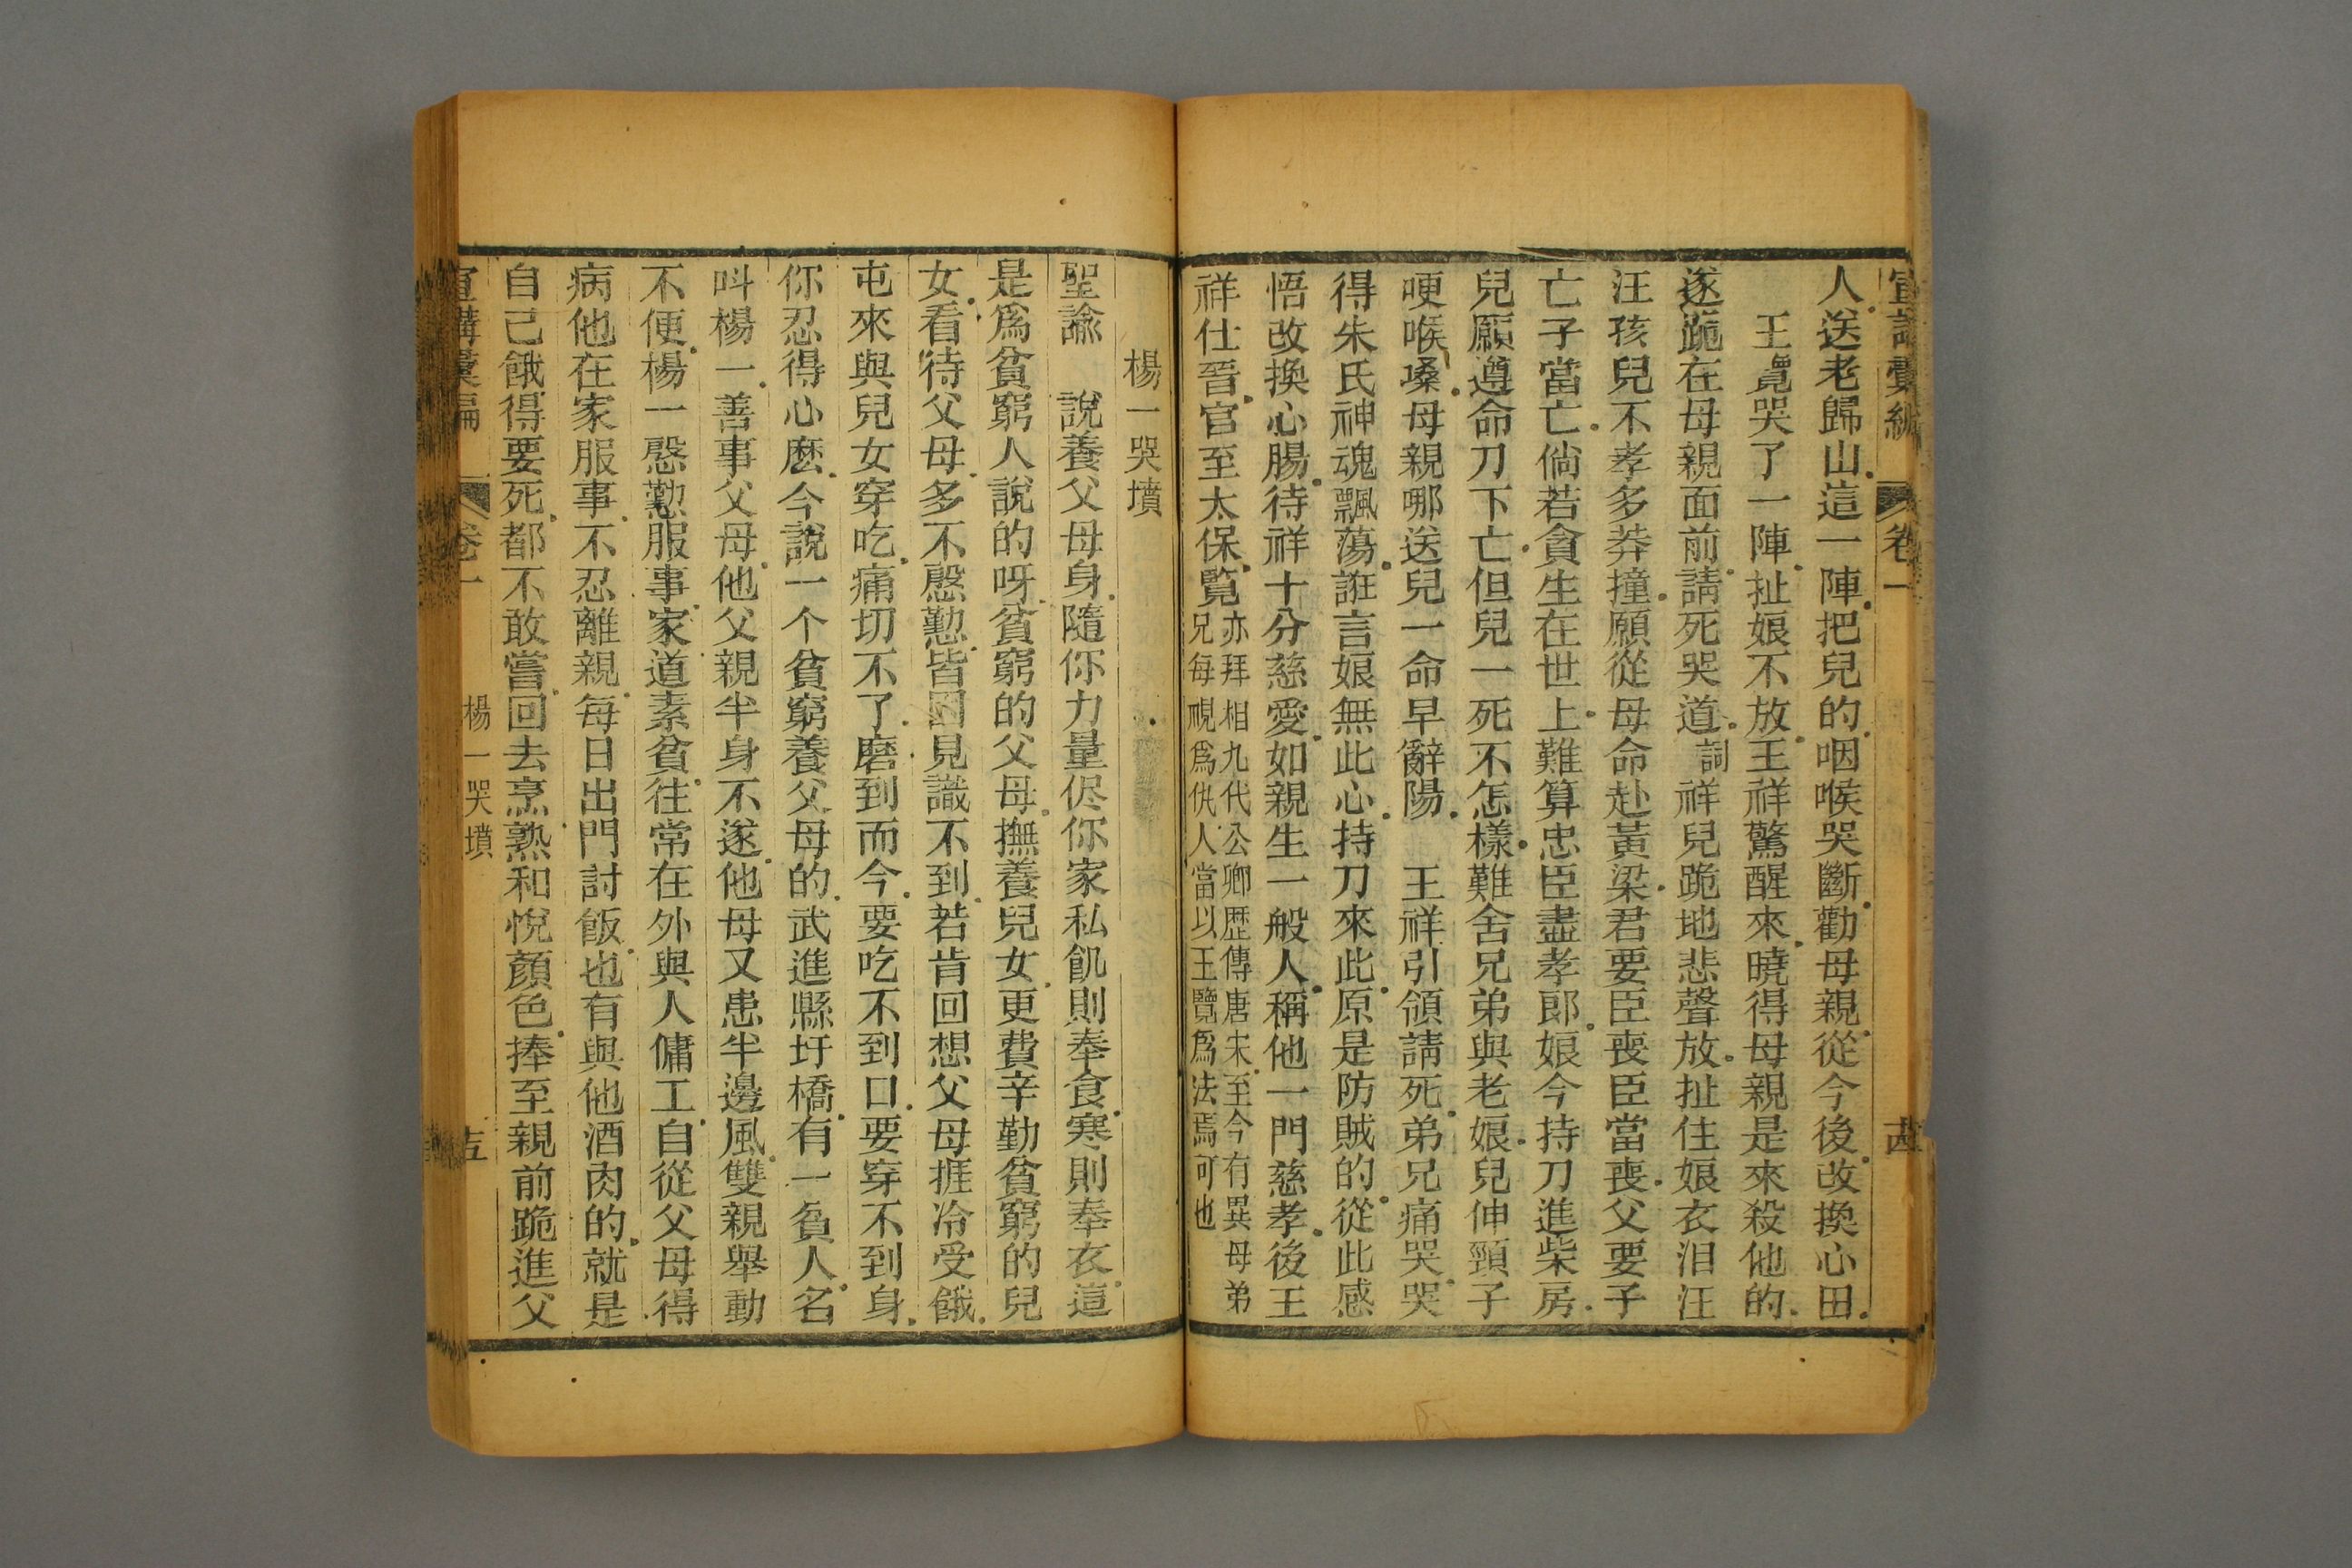 宣講彙編 卷一 十四
人送老歸山這一陣把兒的咽喉哭斷勸母親從今後改換心田
王覽哭了一陣扯娘不放王祥驚醒來曉得母親是來殺他的
遂跪在母親面前請死哭道詞祥兒跪地悲聲放扯住娘衣泪汪
汪孩兒不孝多莽撞願從母命赴黃梁君要臣喪臣當喪父要子
亡子當亡倘若貪生在世上難算忠臣盡孝郎娘今持刀進柴房
兒願遵命刀下亡但兒一死不怎樣難舍兄弟與老娘兒伸頸子
哽喉嗓母親哪送兒一命早辭陽 王祥引領請死弟兄痛哭哭
得朱氏神魂飄蕩誑言娘無此心持刀來此原是防賊的從此感
悟改換心腸待祥十分慈愛如親生一般人稱他一門慈孝後王
祥仕晉官至太保覽亦拜相九代公卿歷傳唐宋至今有異母弟
兄每視爲仇人當以王覽爲法焉可也
楊一哭墳
聖諭 說養父母身隨你力量侭你家私飢則奉食寒則奉衣這
是爲貧窮人說的呀貧窮的父母撫養兒女更費辛勤貧窮的兒
女看待父母多不慇懃皆因見識不到若肯回想父母捱冷受餓
屯來與兒女穿吃痛切不了磨到而今要吃不到口要穿不到身
你忍得心麽今說一个貧窮養父母的武進縣圩橋有一貧人名
呌楊一善事父母他父親半身不遂他母又患半邊風雙親舉動
不便楊一慇懃服事家道素貧往常在外與人傭工自從父母得
病他在家服事不忍離親每日出門討飯也有與他酒肉的就是
自己餓得要死都不敢嘗回去烹熟和悅顏色捧至親前跪進父
宣講彙編 卷一 楊一哭墳 十五